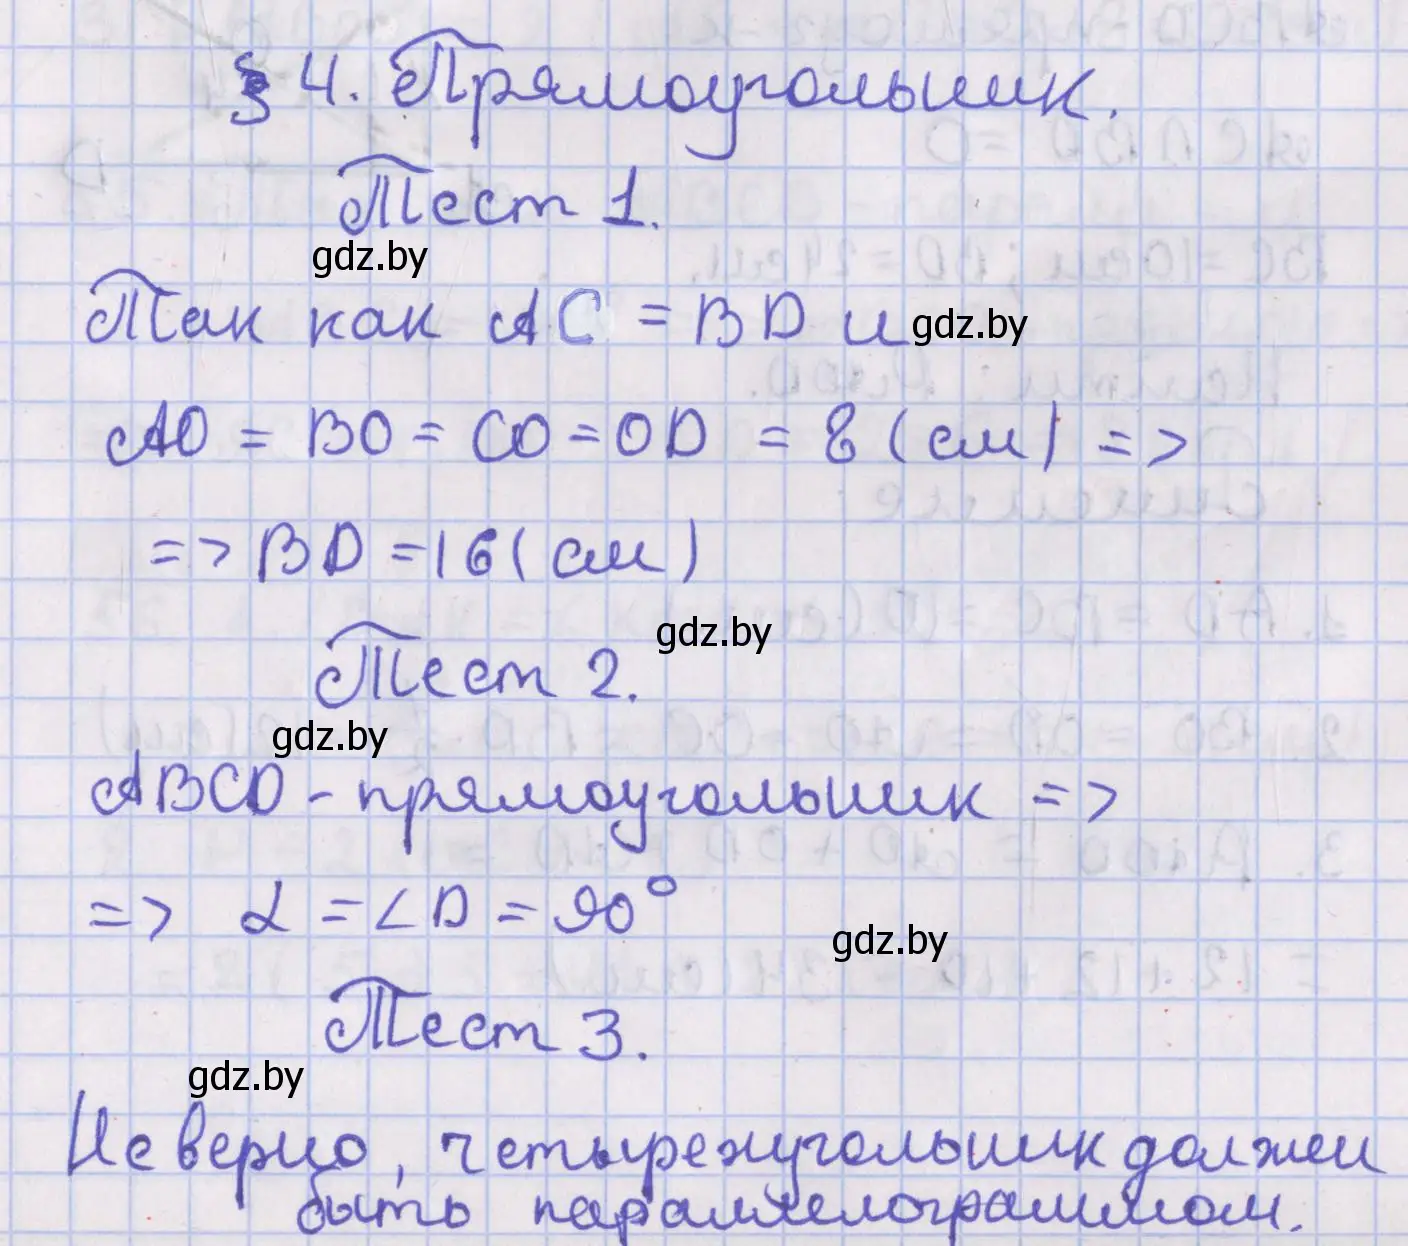 § 4. Прямоугольник.
Тест 1.
gdz.by
Так как AC = BD и
gdz.by
AO = BO = CO = OD = 8 (см) =>
=> BD = 16 (см)
gdz.by
Тест 2.
gdz.by
ABCD - прямоугольник =>
=> α = ∠D = 90°
gdz.by
Тест 3.
gdz.by
Неверно, четырехугольник должен
быть параллелограммом.